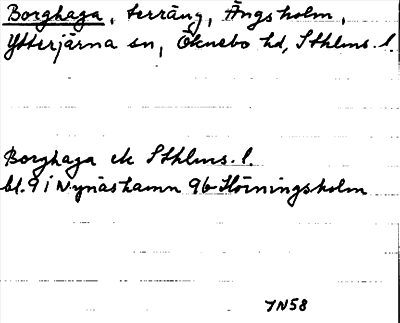 Borghaga, terräng, Ängsholm,
Ytterjärna sn, Öknebo hd, Sthlms. l.
Borghaga ek Sthlms. l.
bl. 9 i Nynäshamn 9b Hörningsholm
JN58